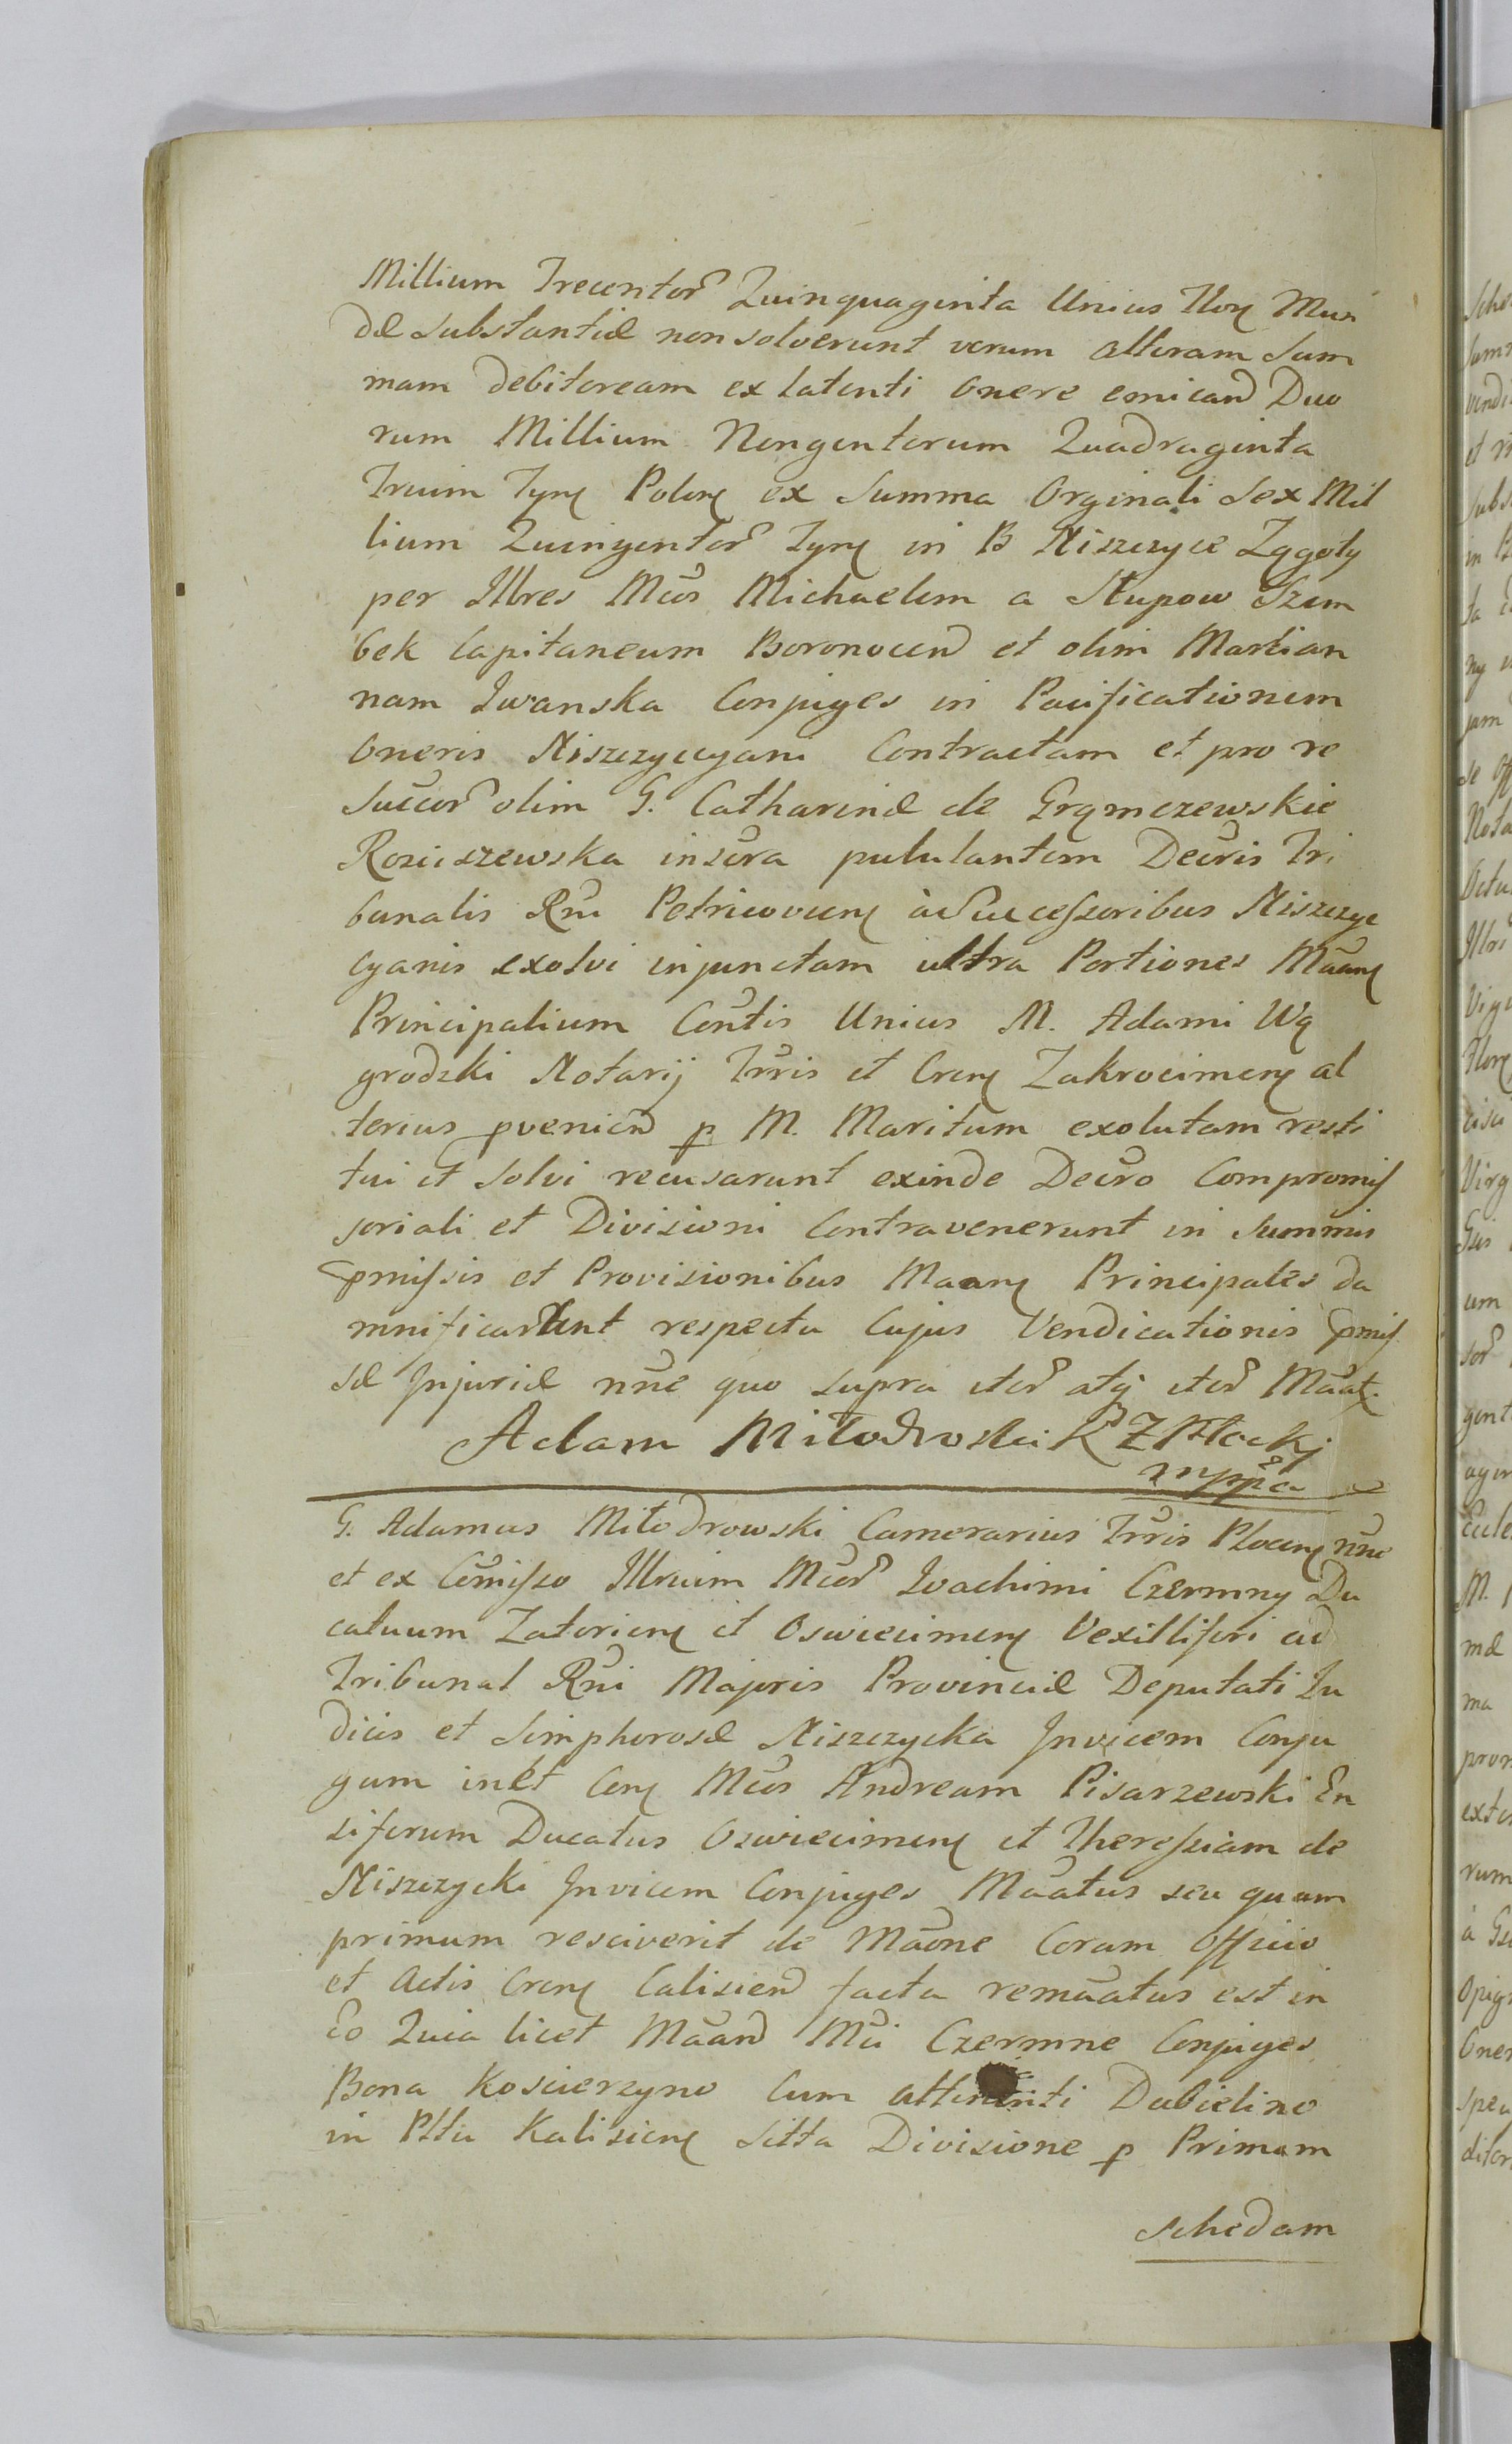 Millium Trecentor Quinquaginta Unius Flor Mun
dæ Substantiæ non solverunt verum alteram Sum
mam debitoream ex latenti onere emicand Duo
rum Millium Nongentorum Quadraginta
Trium Tyn Polon ex Summa Orginali Sex Mil
lium Quingentor Tyn in B Niszczyce Zągoty
per Illres Mcos Michaelem a Słupow Szem
bek Capitaneum Boronocen et olim Martian
nam Iwanska Conjuges in Pacificationem
Oneris Niszczycyani Contractam et pro re
Succor olim G. Catharinæ de Grąmczewskie
Rosciszewska inscra pululantem Decris Tri
bunalis Rni Petricovien à Successoribus Niszczy
cyanis exolvi injunctam ultra Portiones Maan
Principalium Contis Unius M. Adami Wą
grodzki Notarij Trris et Cren Zakrocimen al
terius pvenien p M. Maritum exolutam resti
tui et solvi recusarunt exinde Decro Compromis
soriali et Divisioni Contravenerunt in Summis
pmissis et Provisionibus Maan Principales da
mnificarunt respectu Cujus Vendicationis pmis
sæ Injuriæ nunc quo supra iter atq iter Maat
Adam Miłodroski K Z Płocki
mppa
G. Adamus Miłodrowski Camerarius Trris Plocen nunc
et ex Comisso Illrium Mcor Ioachimi Czermny Du
catuum Zatorien et Oswiecimen Vexilliferi ad
Tribunal Rni Majoris Provinciæ Deputati Iu
dicis et Simphorosæ Niszczycka Invicem Conju
gum inht Con Mcos Andream Pisarzewski En
siferum Ducatus Oswiecimen et Theressiam de
Niszczycki Invicem Conjuges Maatus seu quam
primum resciverit de Maone Coram Officio
et Actis Cren Calisien facta remaatus est in
Eo Quia licet Maand Mci Czermne Conjuges
Bona Koscierzyno Cum attinenti Dabielino
in Pttu Kalisien Sitta Divisione p Primam
schedam